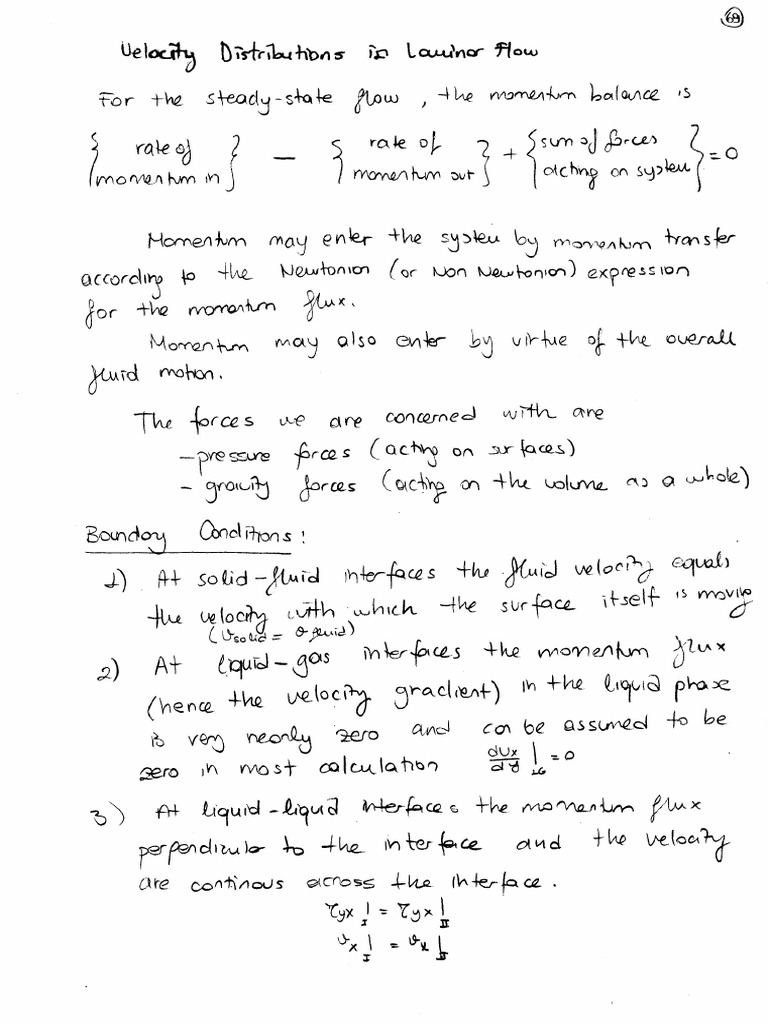 69
Velocity Distributions in Laminar Flow
For the steady-state flow, the momentum balance is
{rate of momentum in} - {rate of momentum out} + {sum of forces acting on system} = 0
Momentum may enter the system by momentum transfer
according to the Newtonian (or Non Newtonian) expression
for the momentum flux.
Momentum may also enter by virtue of the overall
fluid motion.
The forces we are concerned with are
- pressure forces (acting on surfaces)
- gravity forces (acting on the volume as a whole)
Boundary Conditions:
1) At solid-fluid interfaces the fluid velocity equals
the velocity with which the surface itself is moving
(υsolid = υfluid)
2) At liquid-gas interfaces the momentum flux
(hence the velocity gradient) in the liquid phase
is very nearly zero and can be assumed to be
zero in most calculation dUx/dy |LG = 0
3) At liquid-liquid interfaces the momentum flux
perpendicular to the interface and the velocity
are continous across the interface.
τyx |I = τyx |II
υx |I = υx |II